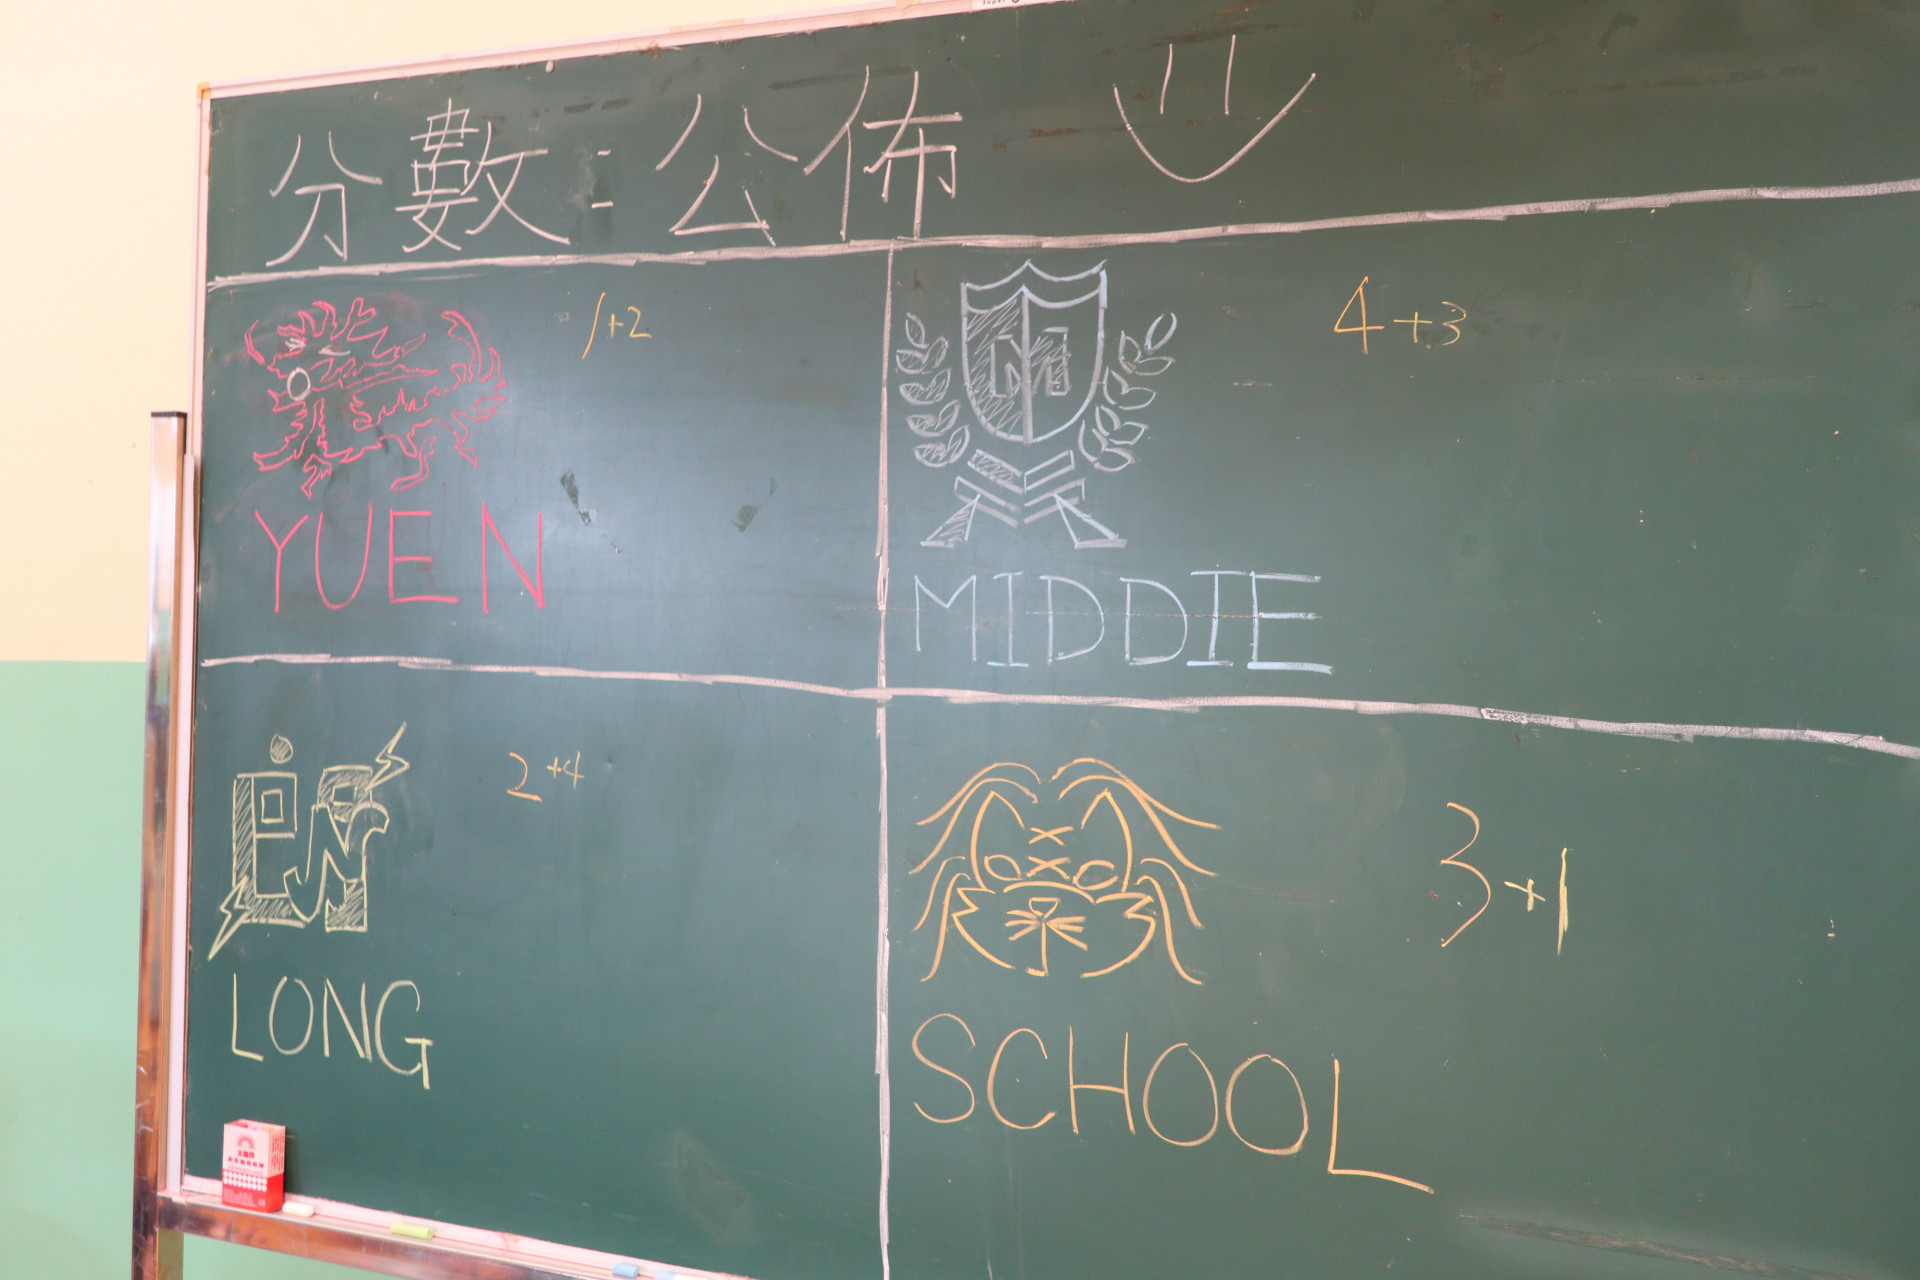 分數：公佈
1+2
YUEN
M
4+3
MIDDIE
2+4
LONG
3+1
SCHOOL